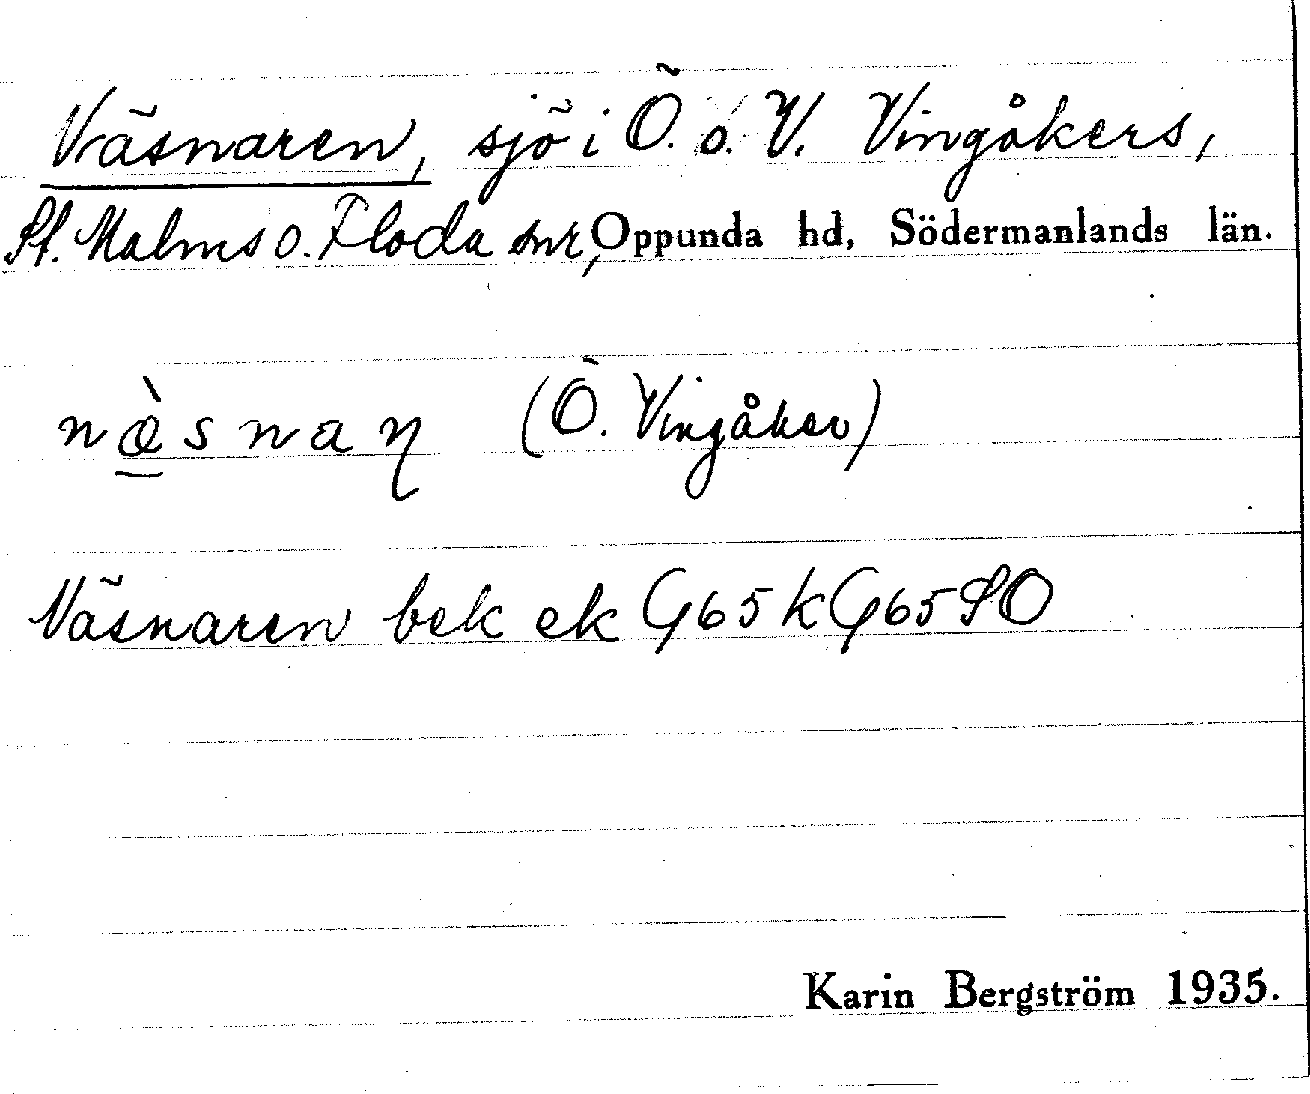 Näsnaren, sjö i Ö. o. V. Vingåkers,
St. Malms o. Floda snr, Oppunda hd, Södermanlands län.
nàsnaŋ (Ö. Vingåker)
Näsnaren bek ek G65 k G65 SO
Karin Bergström 1935.